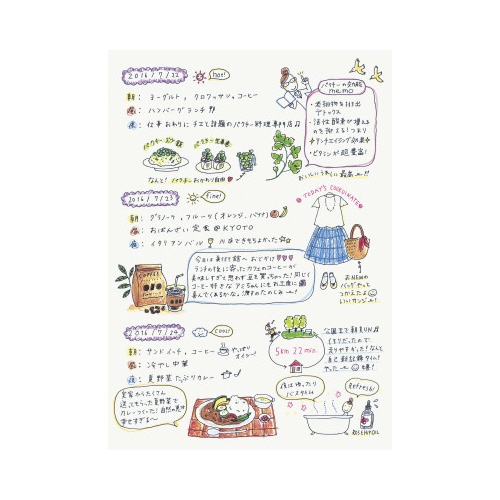 2016/7/22 hot!
朝: ヨーグルト, クロワッサン, コーヒー
昼: ハンバーグランチ
夜: 仕事おわりにチエと話題のパクチー料理専門店♫
パクチーの効能
memo
・老廃物を排出
デトックス
・活性酸素が増える
のを抑える!つまり
アンチエイジング効果
・ビタミンが超豊富!
おいしいうえに最高
なんと! パクチーおかわり自由
2016/7/23 fine!
朝: グラノーラ, フルーツ(オレンジ, バナナ)
昼: おばんざい定食@KYOTO
夜: イタリアンバル 川床できもちよかった
TODAY'S COORDINATE
今日は
ランチの後に寄ったカフェのコーヒーが
美味しすぎて思わず豆を買っちゃった!同じく
コーヒー好きな
喜んでくれるかな。渡すのたのしみ
おNEWの
バッグやっと
つかえたよ
いいカンジ
2016/7/24 cool!
朝: サンドイッチ, コーヒー やっぱり
オイシー!
昼: 冷やし中華
夜: 夏野菜たっぷりカレー
5km 22min.
公園まで朝RUN♫
くもりだったので
走りやすかった!なんと
自己新記録タイム!
やったー
実家からたくさん
送ってもらった夏野菜で
カレーつくった!自然の恵み
幸せすぎる〜
夜はゆったり
バスタイム
Refresh!
ROSEHIPOIL